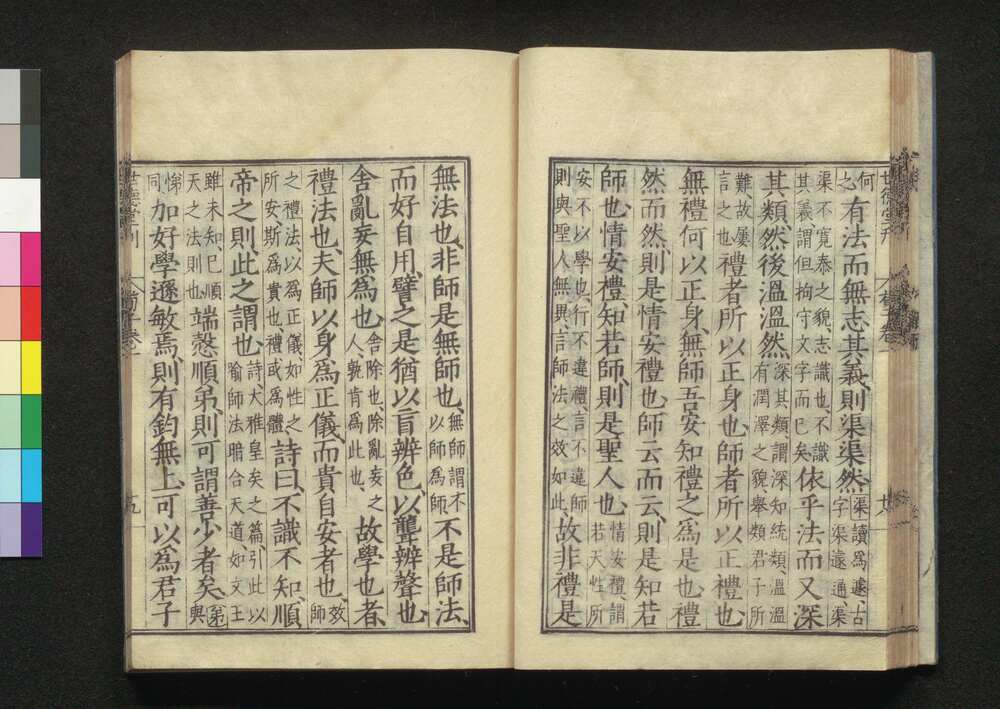 何之有法而無志其義、則渠渠然、渠讀爲遽古字渠遽通、渠
渠不寬泰之貌、志識也、不識其義謂但拘守文字而已矣依乎法而又深
其類、然後溫溫然、深其類謂深知統類、溫溫有潤澤之貌舉類君子所
難故屢言之也禮者所以正身也師者所以正禮也
無禮何以正身、無師吾安知禮之爲是也禮
然而然、則是情安禮也師云而云、則是知若
師也情安禮、知若師、則是聖人也情安禮、謂若天性所
安不以學也、行不違禮、言不違師則與聖人無異、言師法之效如此、故非禮是
無法也、非師是無師也、無師謂不以師爲師、不是師法、
而好自用、譬之是猶以盲辨色、以聾辨聲也、
舍亂妄無爲也、舍除也、除亂妄之人、孰肯爲此也、故學也者、
禮法也、夫師以身爲正儀而貴自安者也、效師
之禮法、以爲正儀、如性之所安、斯爲貴也、禮或爲體、詩曰、不識不知、順
帝之則、此之謂也、詩大雅皇矣之篇、引此以喻師法暗合天道如文王
雖未知、已順天之法則也端愨順弟、則可謂善少者矣、弟與
悌同加好學遜敏焉、則有鈞無上、可以爲君子
世德堂刊
荀子卷一
五